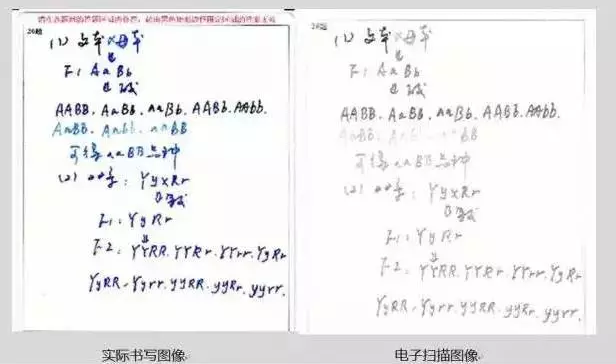 请在各题目的答题区域内作答，超出黑色矩形边框限定区域的答案无效
26题
(1) 父本 × 母本
F1 AaBb
AABB. AaBb. aaBb. AABb. AAbb.
AaBB. Aabb. aaBB
可得 aaBB 品种
(2) YyxRr
F1: YyRr
F2: YYRR. YYRr. YYrr. YyRr
YyRR. Yyrr. yyRR. yyRr. yyrr.
实际书写图像
26题
(1) 父本 × 母本
F1 AaBb
AABB. AaBb. aaBb. AABb. AAbb.
AaBB. Aabb. aaBB
可得 aaBB 品种
(2) YyxRr
F1: YyRr
F2: YYRR. YYRr. YYrr. YyRr
YyRR. Yyrr. yyRR. yyRr. yyrr.
电子扫描图像